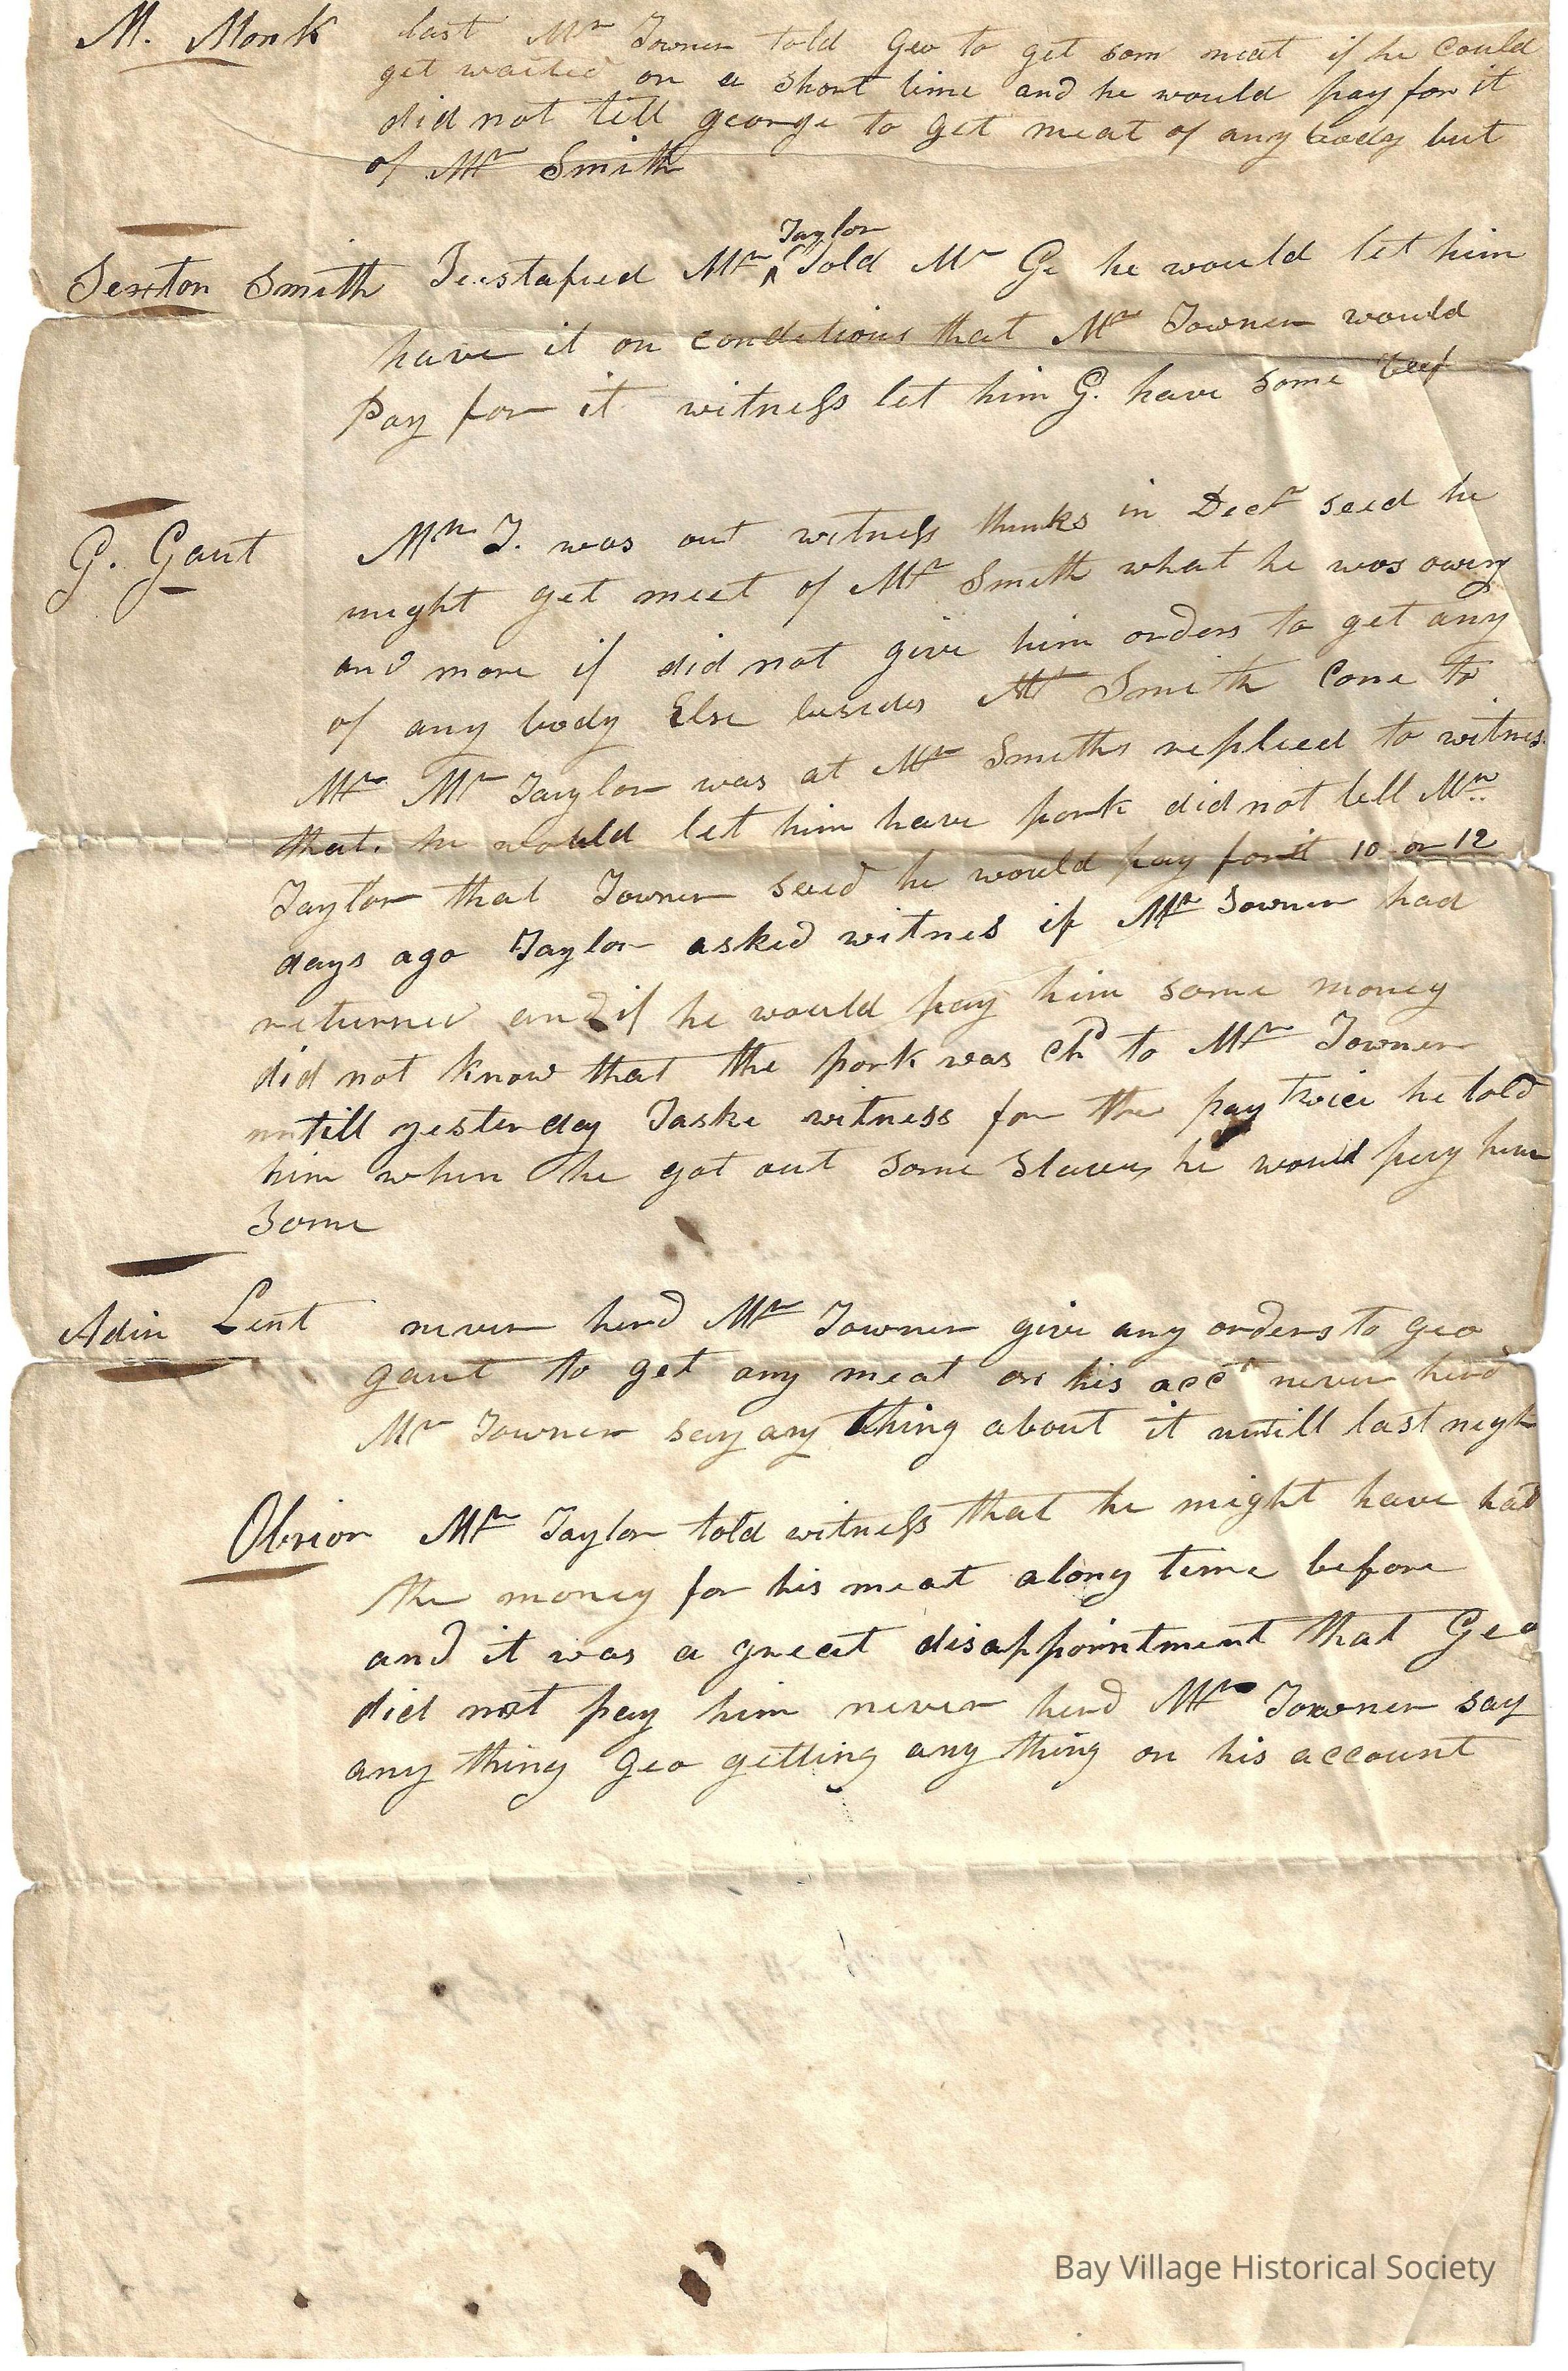 M. Monk last Mr Towner told Geo to get som meat if he could
get waited on a short time and he would pay for it
did not till george to get meat of any body but
of Mr Smith
Taylor
Sexton Smith Testafied Mr ^ Told Mr G. he would let him
have it on conditions that Mr Towner would
Pay for it witness let him G. have some beef
G. Gant Mr T. was out witness thinks in Decr seed he
might get meet of Mr Smith what he was owing
and more if did not give him orders to get any
of any body Else besides Mr Smith Come to
Mr Mr Taylor was at Mr Smiths replied to witnes
that he would let him have pork did not tell Mr
Taylor that Towner seed he would pay for it 10 or 12
days ago Taylor asked witnes if Mr Towner had
returned and if he would pay him some money
did not know that the pork was chd to Mr Towner
untill yesterday Taske witness for the pay twice he told
him when he got out some staves he would pay him
some
Adin Lent never herd Mr Towner give any orders to Geo
gant to get any meat on his acct never herd
Mr Towner say any thing about it untill last nigh
Obrion Mr Taylor told witness that he might have had
the money for his meat along time before
and it was a great disappointment that Geo
did not pay him never herd Mr Towner say
any thing Geo getting any thing on his account
Bay Village Historical Society